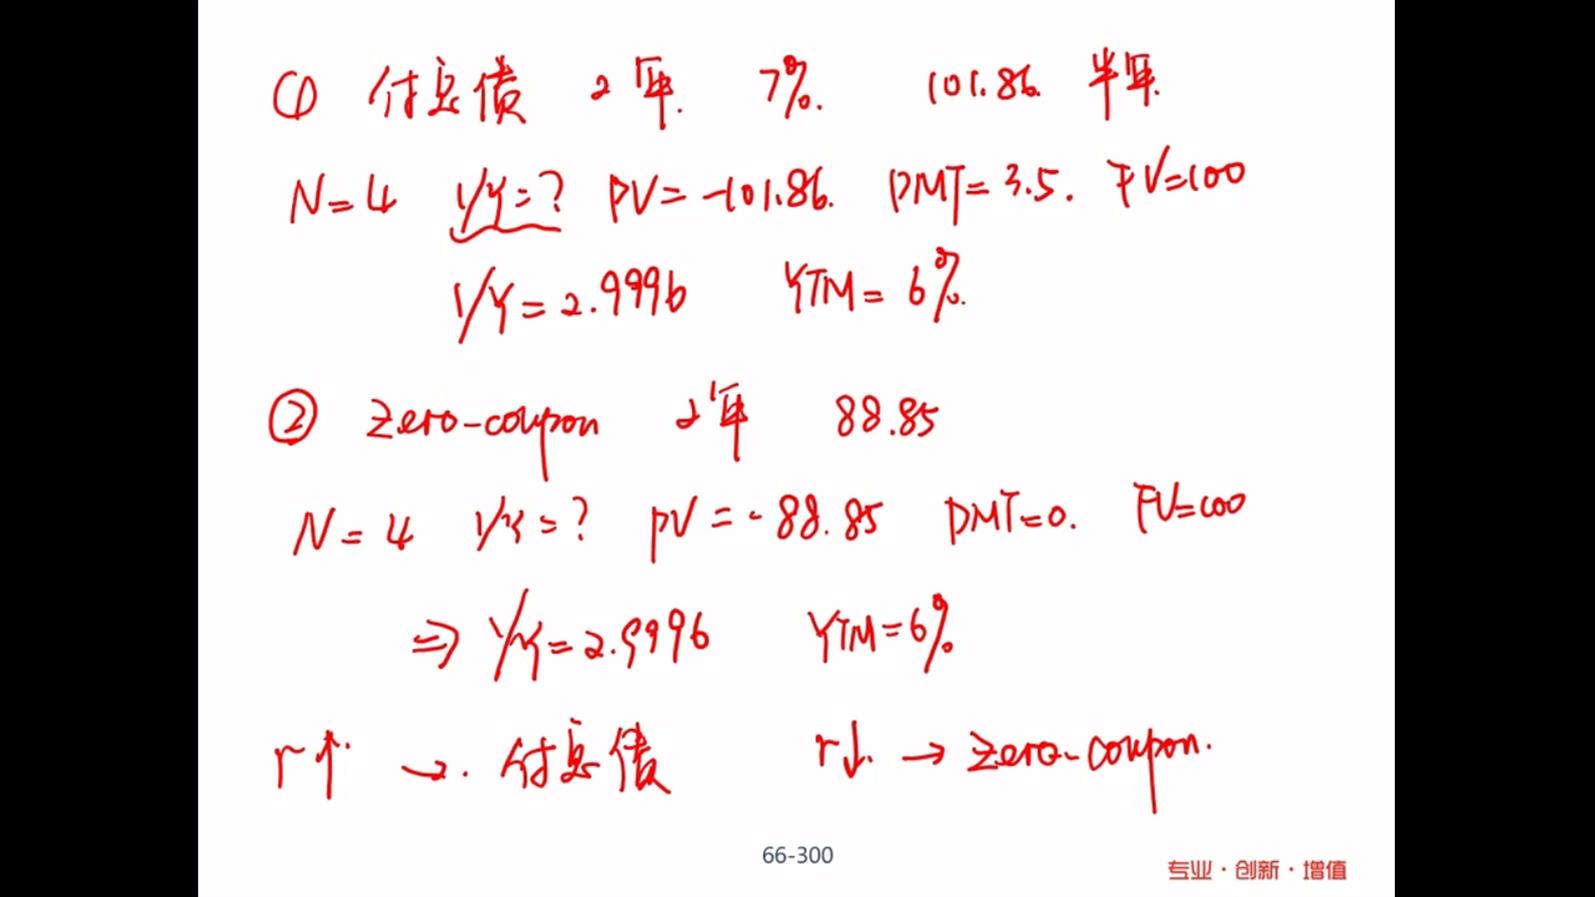 ① 付息债 2年. 7%. 101.86. 半年.
N=4 I/Y=? PV=-101.86. PMT=3.5. FV=100
I/Y=2.9996 YTM=6%.
② Zero-coupon 2年 88.85
N=4 I/Y=? PV=-88.85 PMT=0. FV=100
⇒ I/Y=2.9996 YTM=6%
r↑. →. 付息债 r↓. → Zero-coupon.
66-300
专业·创新·增值